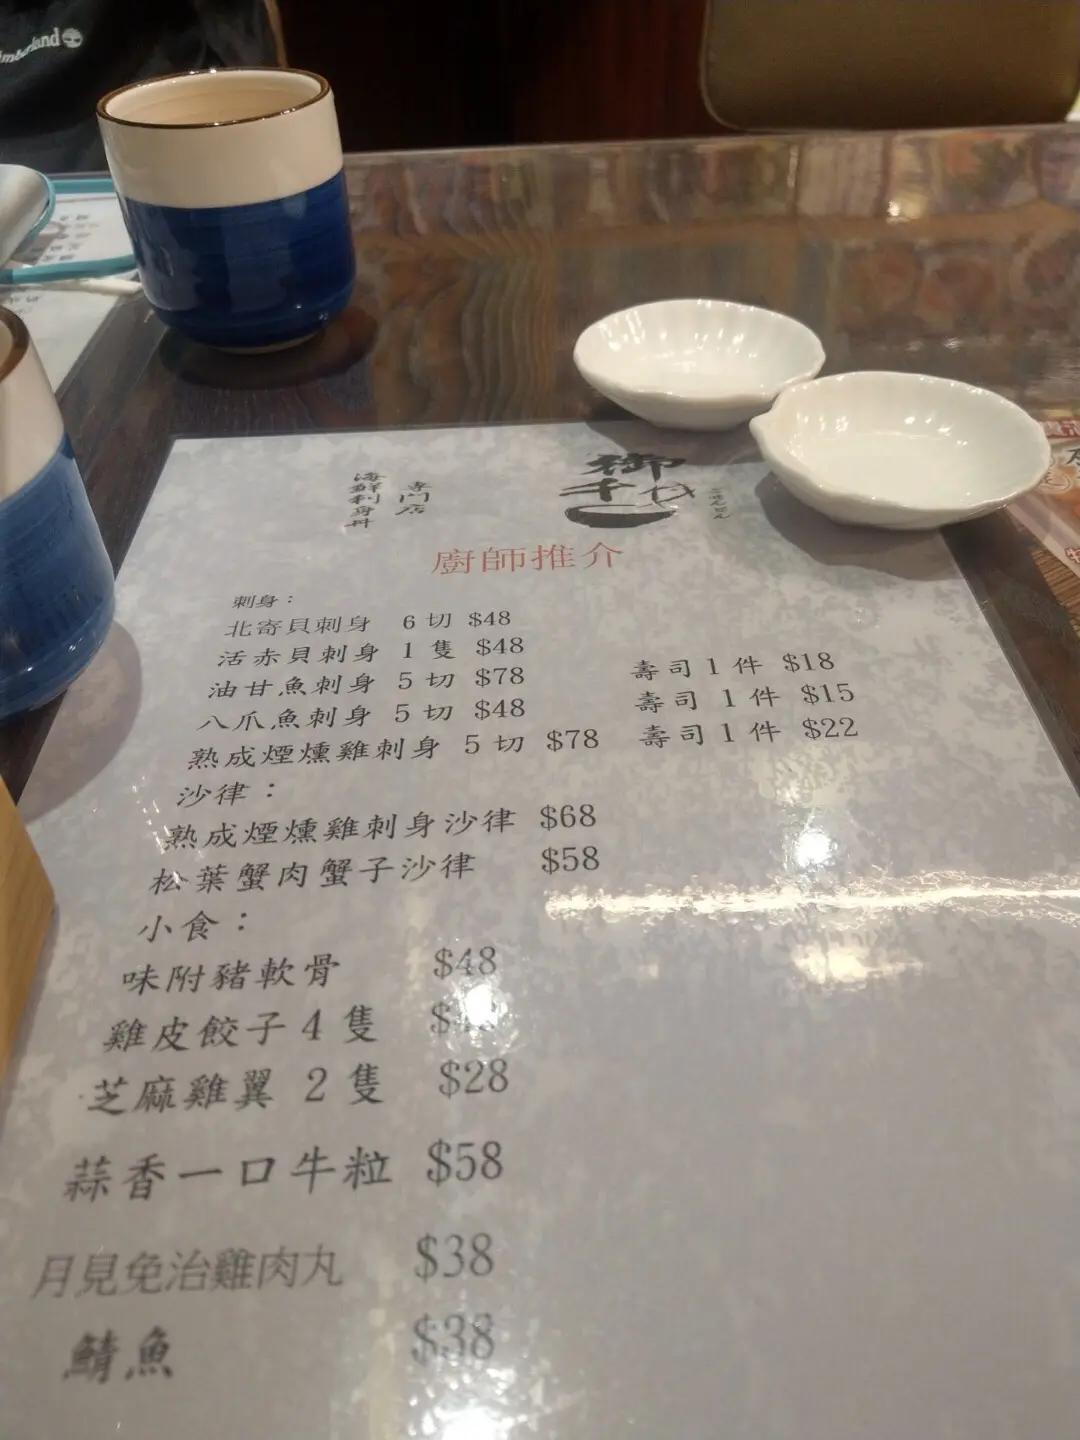 御
千代
海鮮刺身丼
専門店
廚師推介
刺身：
北寄貝刺身 6切 $48
活赤貝刺身 1隻 $48
油甘魚刺身 5切 $78 壽司1件 $18
八爪魚刺身 5切 $48 壽司 1件 $15
熟成煙燻雞刺身 5切 $78 壽司1件 $22
沙律：
熟成煙燻雞刺身沙律 $68
松葉蟹肉蟹子沙律 $58
小食：
味附豬軟骨 $48
雞皮餃子4隻
芝麻雞翼 2隻 $28
蒜香一口牛粒 $58
月見免治雞肉丸 $38
鯖魚 $38